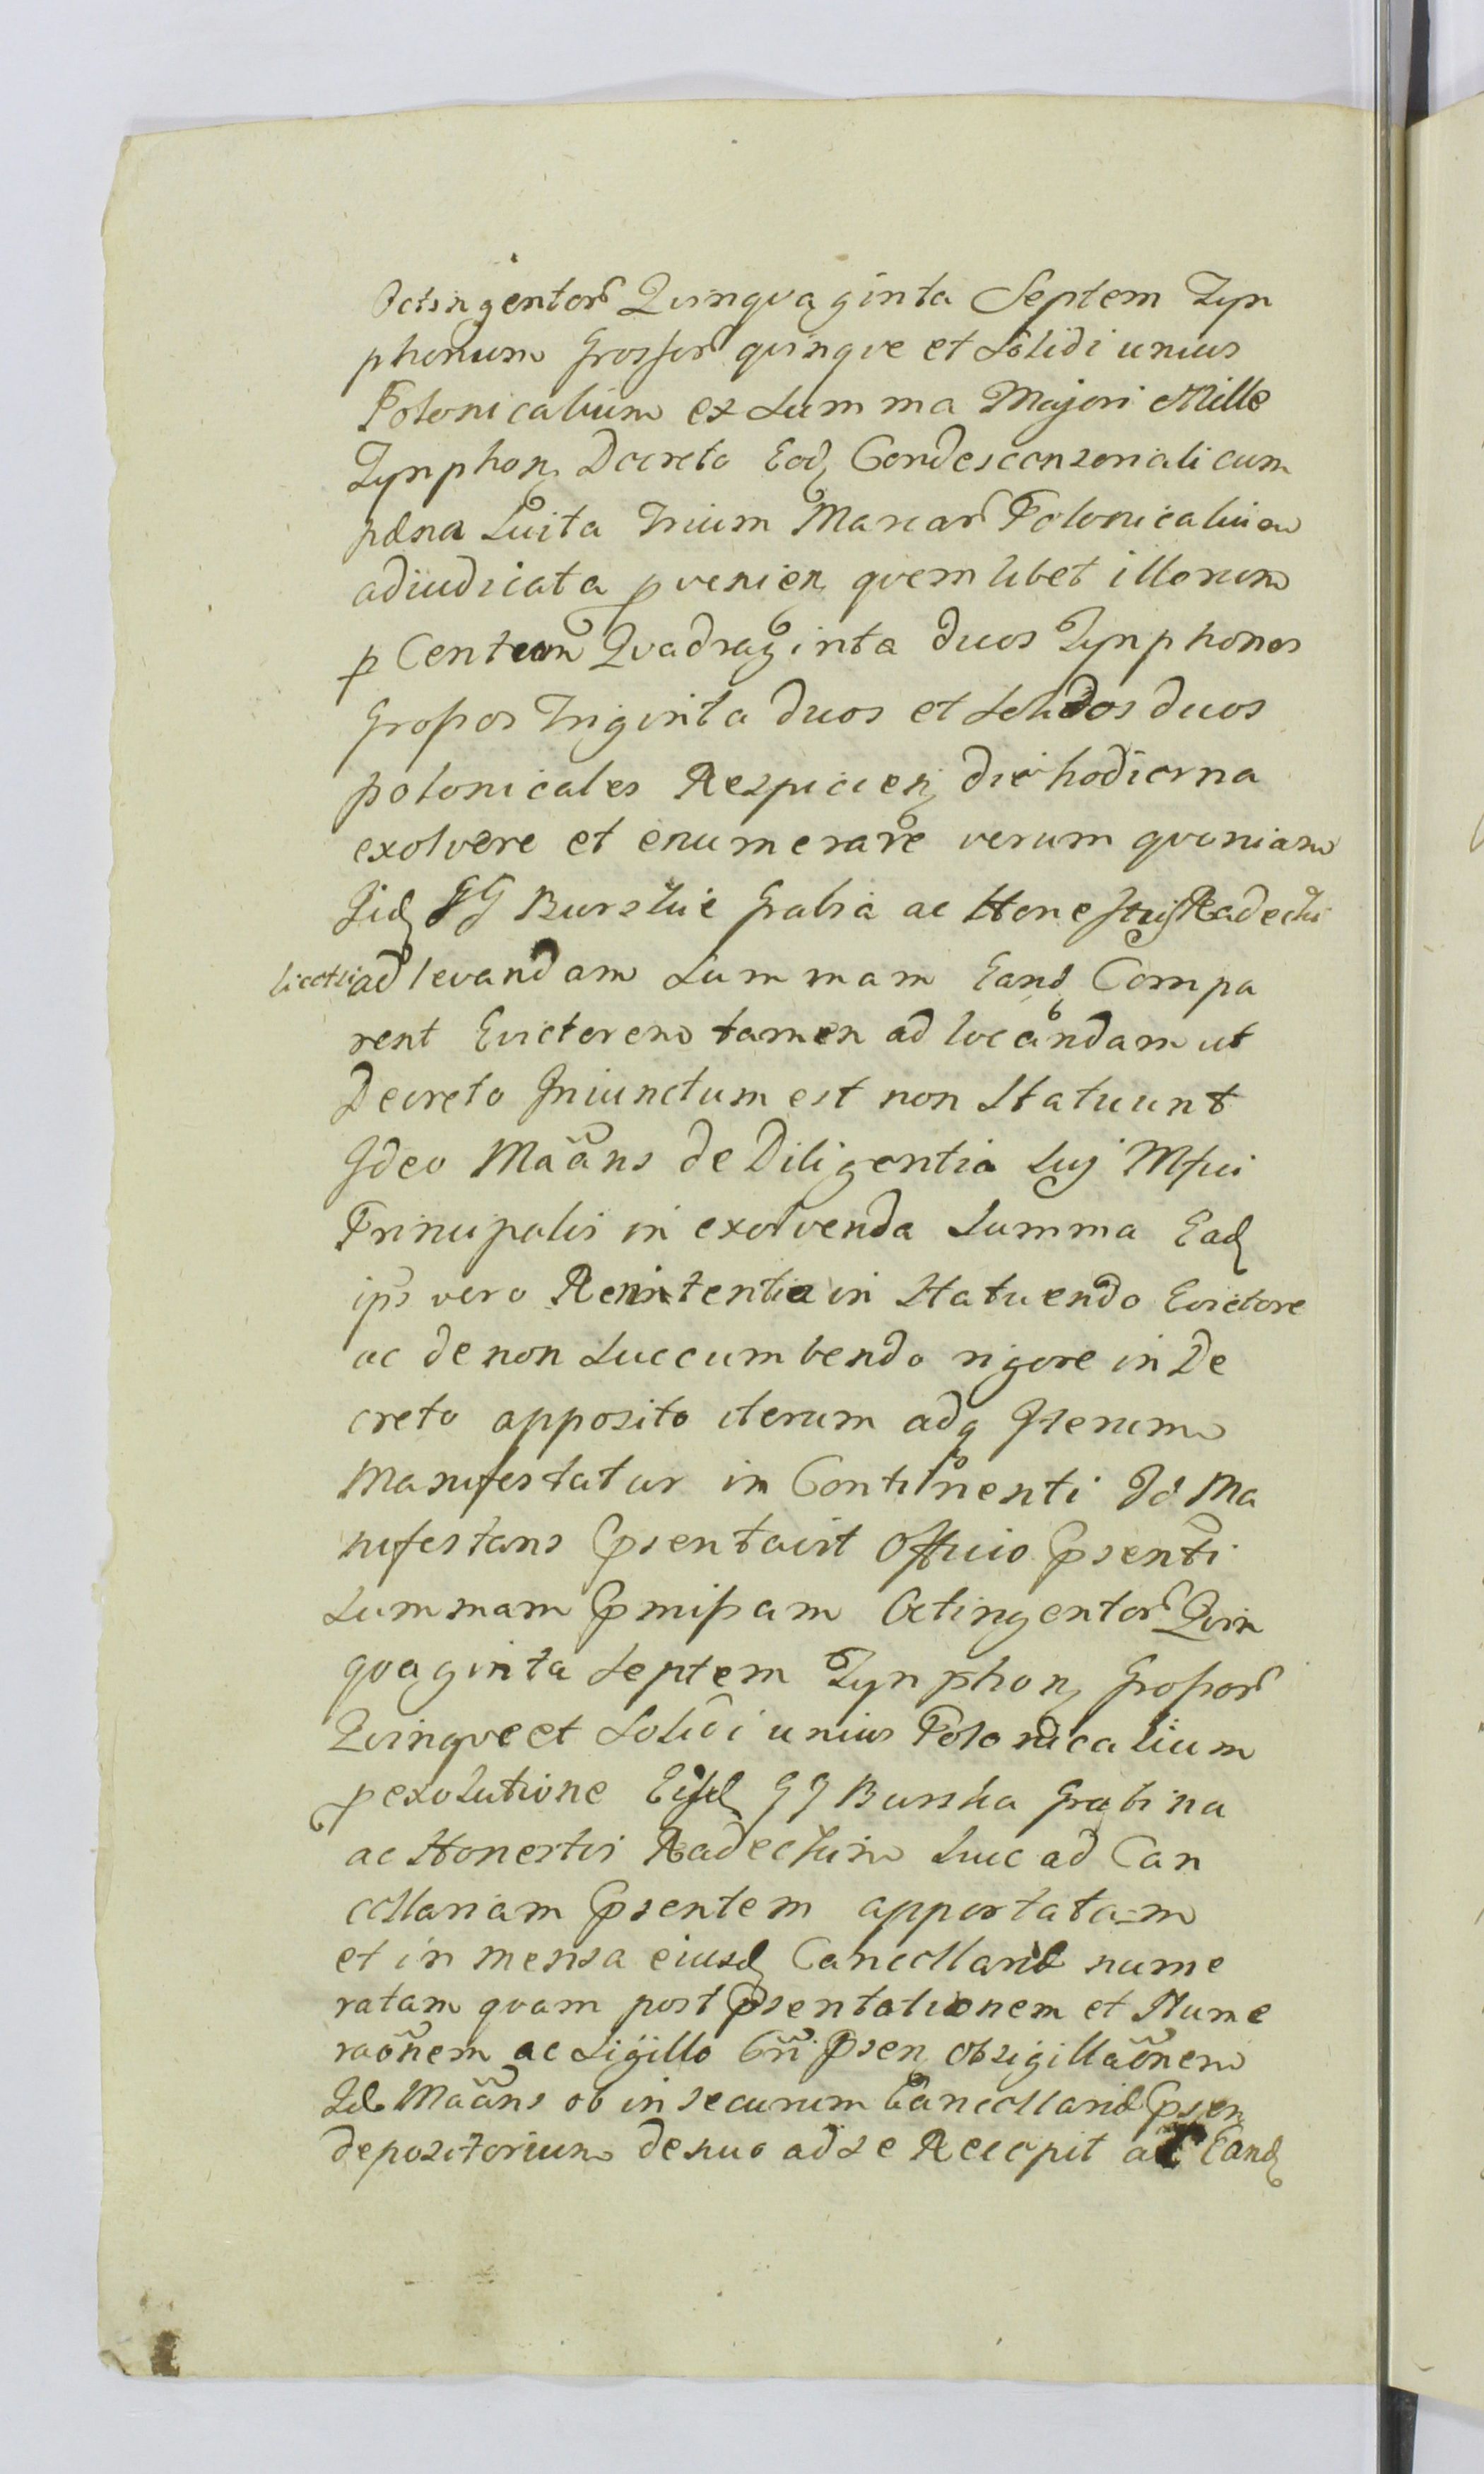 Octingentor Quinquaginta Septem Tyn
phonum Grossor quinque et Solidi unius
Polonicalium ex Summa Majori Mille
Tynphon Decreto Eod Condescensoriali cum
pæna Luita Trium Marcar Polonicalium
adiudicata p venien quemlibet illorum
p Centum Quadraginta duos Tynphones
Grossos Triginta duos et Solidos duos
polonicales Respicien die hodierna
exolvere et enumerare verum quoniam
Iid GG Burskie Grabia ac Honestus Radecki
licet si ad levandam Summam Eand Compa
rent Evictorem tamen ad locandam ut
Decreto Iniunctum est non Statuunt
Ideo Maans de Diligentia Sui Mfici
Principalis in exolvenda Summa Ead
ips vero Renitentia in Statuendo Evictore
ac de non Succumbendo rigore in De
creto apposito iterum adq Iterum
Manifestatur in Continenti Id Ma
nifestans Psentavit Officio Psenti
Summam Pmissam Octingentor Quin
quaginta Septem Tynphon Grossor
Quinque et Solidi unius Polonicalium
p exolutione Eisd GG Burska Grabina
ac Honestis Radeckim huc ad Can
cellariam Psentem apportatam
et in mensa eiusd Cancellariæ nume
ratam quam post Psentationem et Nume
raonem ac Sigillo Cri Psen obsigillaonem
Id Maans ob in securum Cancellariæ Psen
depositorium denuo ad se Recepit ac Eand